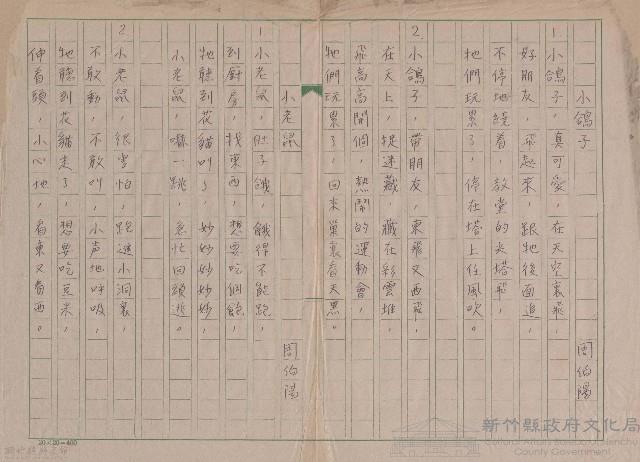 小鴿子 周伯陽
1.小鴿子，真可愛，在天空裏飛，
好朋友，飛起來，跟牠後面追，
不停地繞着，教堂的尖塔飛，
牠們玩累了，停在塔上任風吹。
2.小鴿子，帶朋友，東飛又西飛，
在天上，捉迷藏，藏在彩雲堆，
飛高高開個，熱鬧的運動會，
牠們玩累了，回來巢裏看天黑。
小老鼠 周伯陽
1.小老鼠，肚子餓，餓得不能跑，
到厨房，找東西，想要吃個飽，
牠聽到花貓叫了，妙妙妙妙妙，
小老鼠，嚇一跳，急忙回頭逃。
2.小老鼠，很害怕，跑進小洞裏，
不敢動，不敢叫，小声地呼吸，
牠聽到花貓走了，想要吃豆米，
伸着頭，小心地，看東又看西。
20×20=400
新竹縣政府文化局
Cultural Affairs Bureau of Hsinchu
County Government